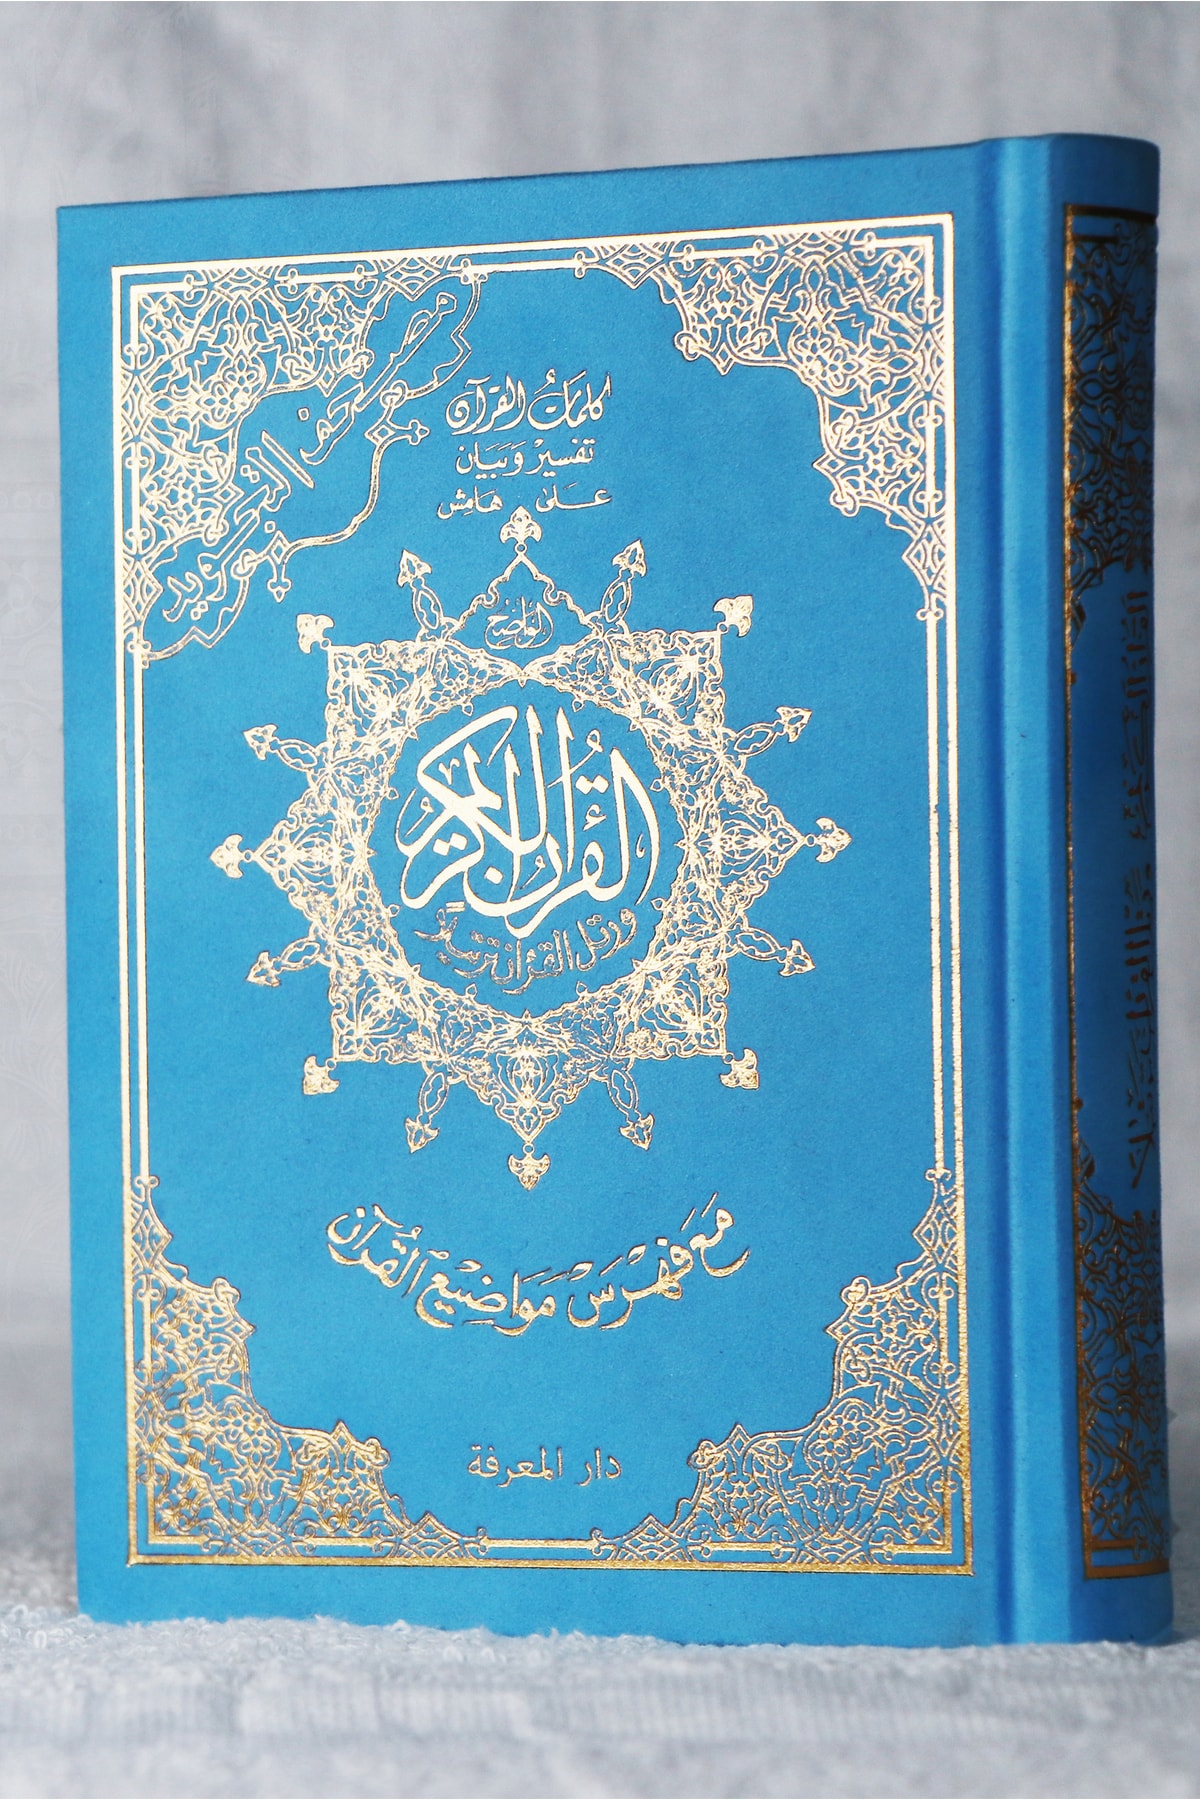 مصحف التجويد
كلمات القرآن
تفسير وبيان
على هامش
الواضح
القرآن الكريم
ورتل القرءان ترتيلا
مع فهرس مواضيع القرآن
دار المعرفة